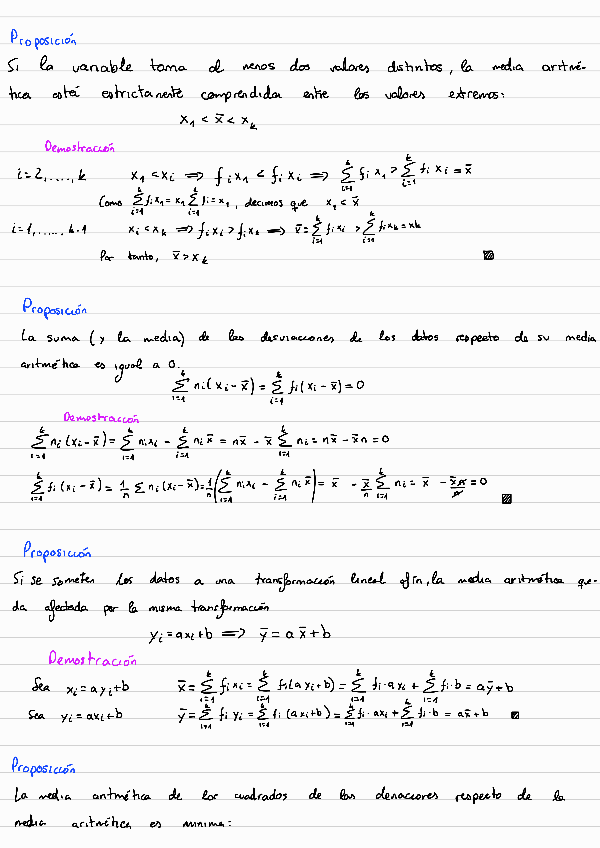 Proposición
Si la variable toma al menos dos valores distintos, la media aritmé-
tica está estrictamente comprendida entre los valores extremos:
x₁ < x̄ < xₖ
Demostración
i=2,....,k x₁ < xᵢ ⟹ fᵢx₁ < fᵢxᵢ ⟹ ∑ᵢ₌₁ᵏ fᵢx₁ > ∑ᵢ₌₁ᵏ fᵢxᵢ = x̄
Como ∑ᵢ₌₁ᵏ fᵢx₁ = x₁ ∑ᵢ₌₁ᵏ fᵢ = x₁, decimos que x₁ < x̄
i=1,.....,k-1 xᵢ < xₖ ⟹ fᵢxᵢ > fᵢxₖ ⟹ x̄ = ∑ᵢ₌₁ᵏ fᵢxᵢ > ∑ᵢ₌₁ᵏ fᵢxₖ = xₖ
Por tanto, x̄ > xₖ
Proposición
La suma (y la media) de las desviaciones de los datos respecto de su media
aritmética es igual a 0.
∑ᵢ₌₁ᵏ nᵢ(xᵢ - x̄) = ∑ᵢ₌₁ᵏ fᵢ(xᵢ - x̄) = 0
Demostración
∑ᵢ₌₁ᵏ nᵢ(xᵢ - x̄) = ∑ᵢ₌₁ᵏ nᵢxᵢ - ∑ᵢ₌₁ᵏ nᵢx̄ = nx̄ - x̄ ∑ᵢ₌₁ᵏ nᵢ = nx̄ - x̄n = 0
∑ᵢ₌₁ᵏ fᵢ(xᵢ - x̄) = 1/n ∑ nᵢ(xᵢ - x̄) = 1/n (∑ᵢ₌₁ᵏ nᵢxᵢ - ∑ᵢ₌₁ᵏ nᵢx̄) = x̄ - x̄/n ∑ᵢ₌₁ᵏ nᵢ = x̄ - x̄n/n = 0
Proposición
Si se someten los datos a una transformación lineal afín, la media aritmética que-
da afectada por la misma transformación
yᵢ = axᵢ + b ⟹ ȳ = a x̄ + b
Demostración
Sea xᵢ = ayᵢ + b x̄ = ∑ᵢ₌₁ᵏ fᵢxᵢ = ∑ᵢ₌₁ᵏ fᵢ(ayᵢ + b) = ∑ᵢ₌₁ᵏ fᵢ·ayᵢ + ∑ᵢ₌₁ᵏ fᵢ·b = aȳ + b
Sea yᵢ = axᵢ + b ȳ = ∑ᵢ₌₁ᵏ fᵢyᵢ = ∑ᵢ₌₁ᵏ fᵢ(axᵢ + b) = ∑ᵢ₌₁ᵏ fᵢ·axᵢ + ∑ᵢ₌₁ᵏ fᵢ·b = ax̄ + b
Proposición
La media aritmética de los cuadrados de las desviaciones respecto de la
media aritmética es mínima: